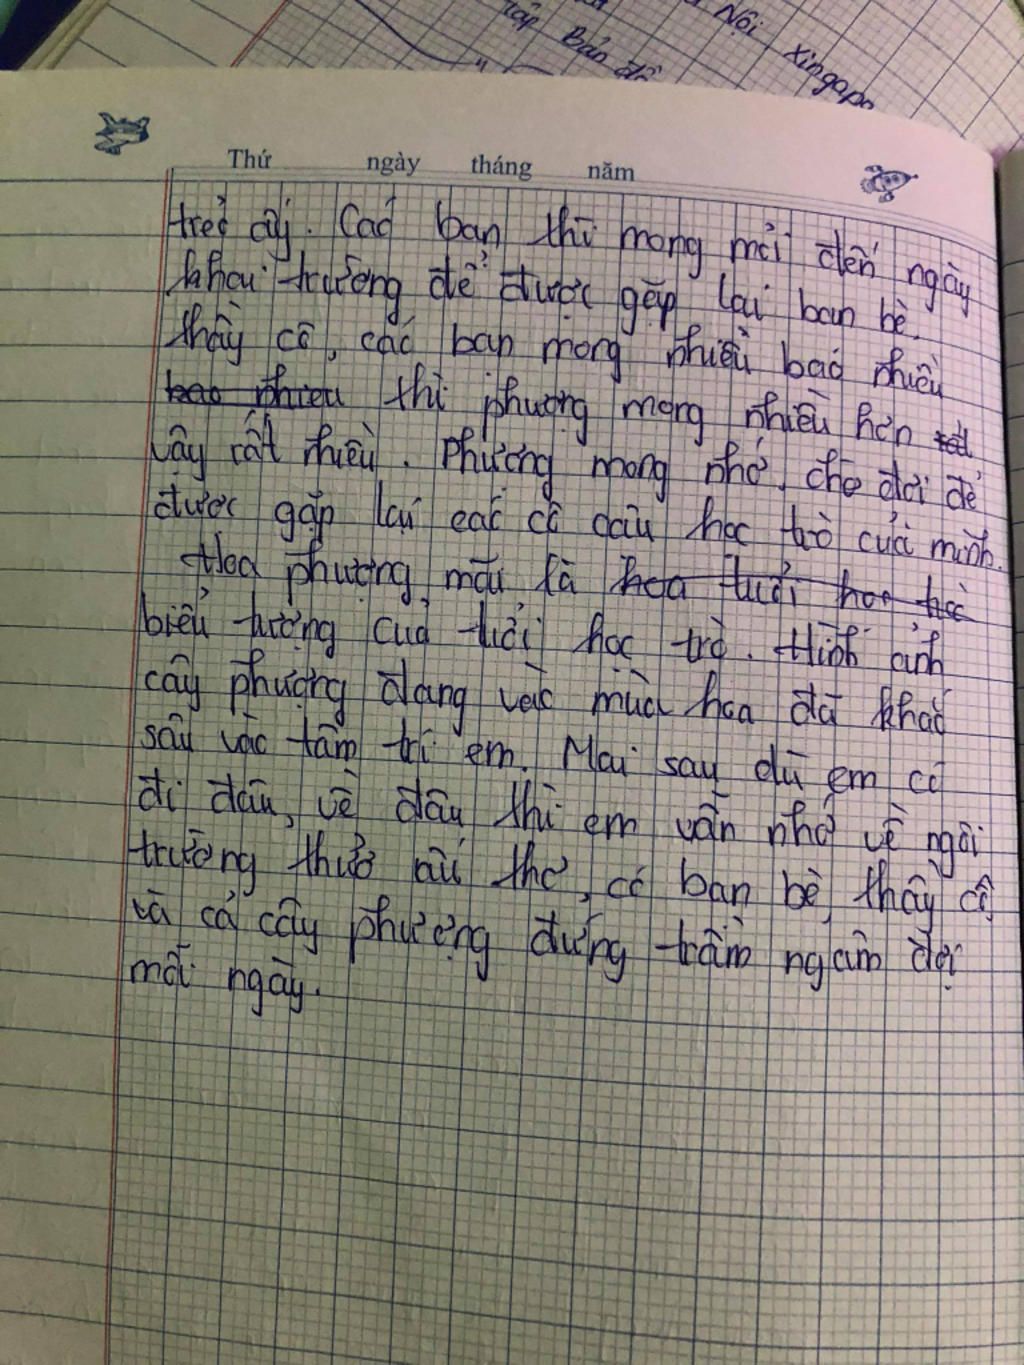 Nội Xingapo
tập Bản đồ
Thứ ngày tháng năm
trẻ ấy. Các bạn thì mong mỏi đến ngày
khai trường để được gặp lại bạn bè,
thầy cô, các bạn mong nhiều bao nhiêu
bao nhieu thì phượng mong nhiều hơn
vậy rất nhiều. Phượng mong nhớ, chờ đợi để
được gặp lại các cô cậu học trò của mình.
Hoa phượng mãi là hoa tuổi học trò
biểu tượng của tuổi học trò. Hình ảnh
cây phượng đang vào mùa hoa đã khắc
sâu vào tâm trí em. Mai say dù em có
đi đâu, về đâu thì em vẫn nhớ về ngôi
trường thuở ấu thơ, có bạn bè, thầy cô,
và cả cây phượng đứng trầm ngâm đợi
mỗi ngày.